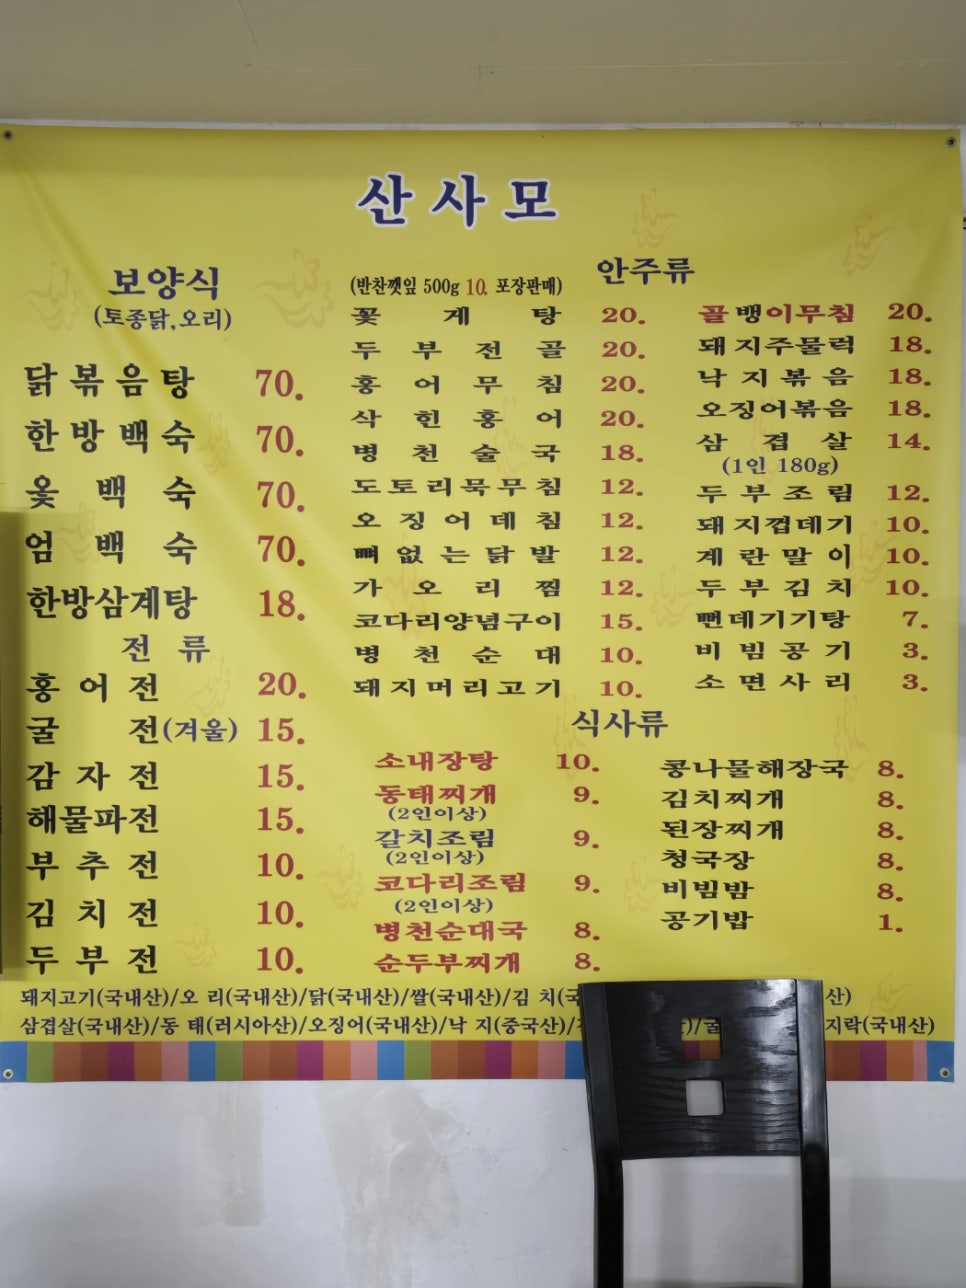 산사모
보양식
(토종닭,오리)
닭볶음탕 70.
한방백숙 70.
옻백숙 70.
엄백숙 70.
한방삼계탕 18.
전류
홍어전 20.
굴전(겨울) 15.
감자전 15.
해물파전 15.
부추전 10.
김치전 10.
두부전 10.
안주류
(반찬깻잎 500g 10. 포장판매)
꽃게탕 20.
두부전골 20.
홍어무침 20.
삭힌홍어 20.
병천술국 18.
도토리묵무침 12.
오징어데침 12.
뼈없는닭발 12.
가오리찜 12.
코다리양념구이 15.
병천순대 10.
돼지머리고기 10.
골뱅이무침 20.
돼지주물럭 18.
낙지볶음 18.
오징어볶음 18.
삼겹살 14.
(1인 180g)
두부조림 12.
돼지껍데기 10.
계란말이 10.
두부김치 10.
뻔데기탕 7.
비빔공기 3.
소면사리 3.
식사류
소내장탕 10.
동태찌개 9.
(2인이상)
갈치조림 9.
(2인이상)
코다리조림 9.
(2인이상)
병천순대국 8.
순두부찌개 8.
콩나물해장국 8.
김치찌개 8.
된장찌개 8.
청국장 8.
비빔밥 8.
공기밥 1.
돼지고기(국내산)/오 리(국내산)/닭(국내산)/쌀(국내산)/김 치(국 산)
삼겹살(국내산)/동 태(러시아산)/오징어(국내산)/낙 지(중국산)/ /굴 지락(국내산)